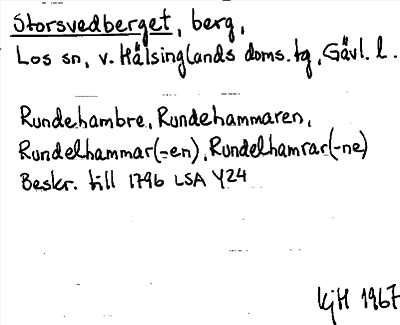 Storsvedberget, berg,
Los sn, v. Hälsinglands doms. tg, Gävl. l.
Rundehambre, Rundehammaren,
Rundelhammar(-en), Rundelhamrar(-ne)
Beskr. till 1796 LSA Y24
KjH 1967